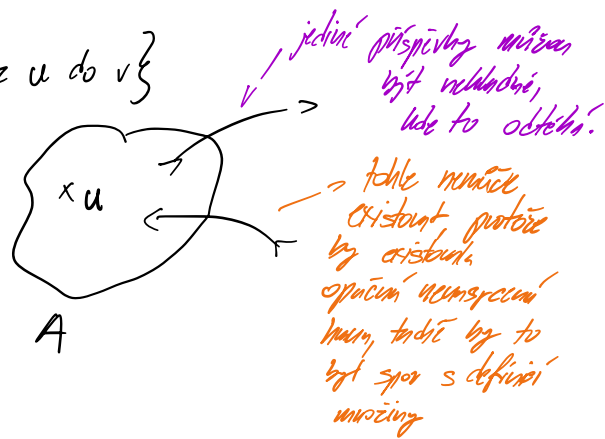 z u do v}
jediné příspěvky můžou
být nekladné,
kde to odtéká.
x u
tohle nemůže
existovat protože
by existovala
opačná nenasycená
hrana, tudíž by to
byl spor s definicí
množiny
A